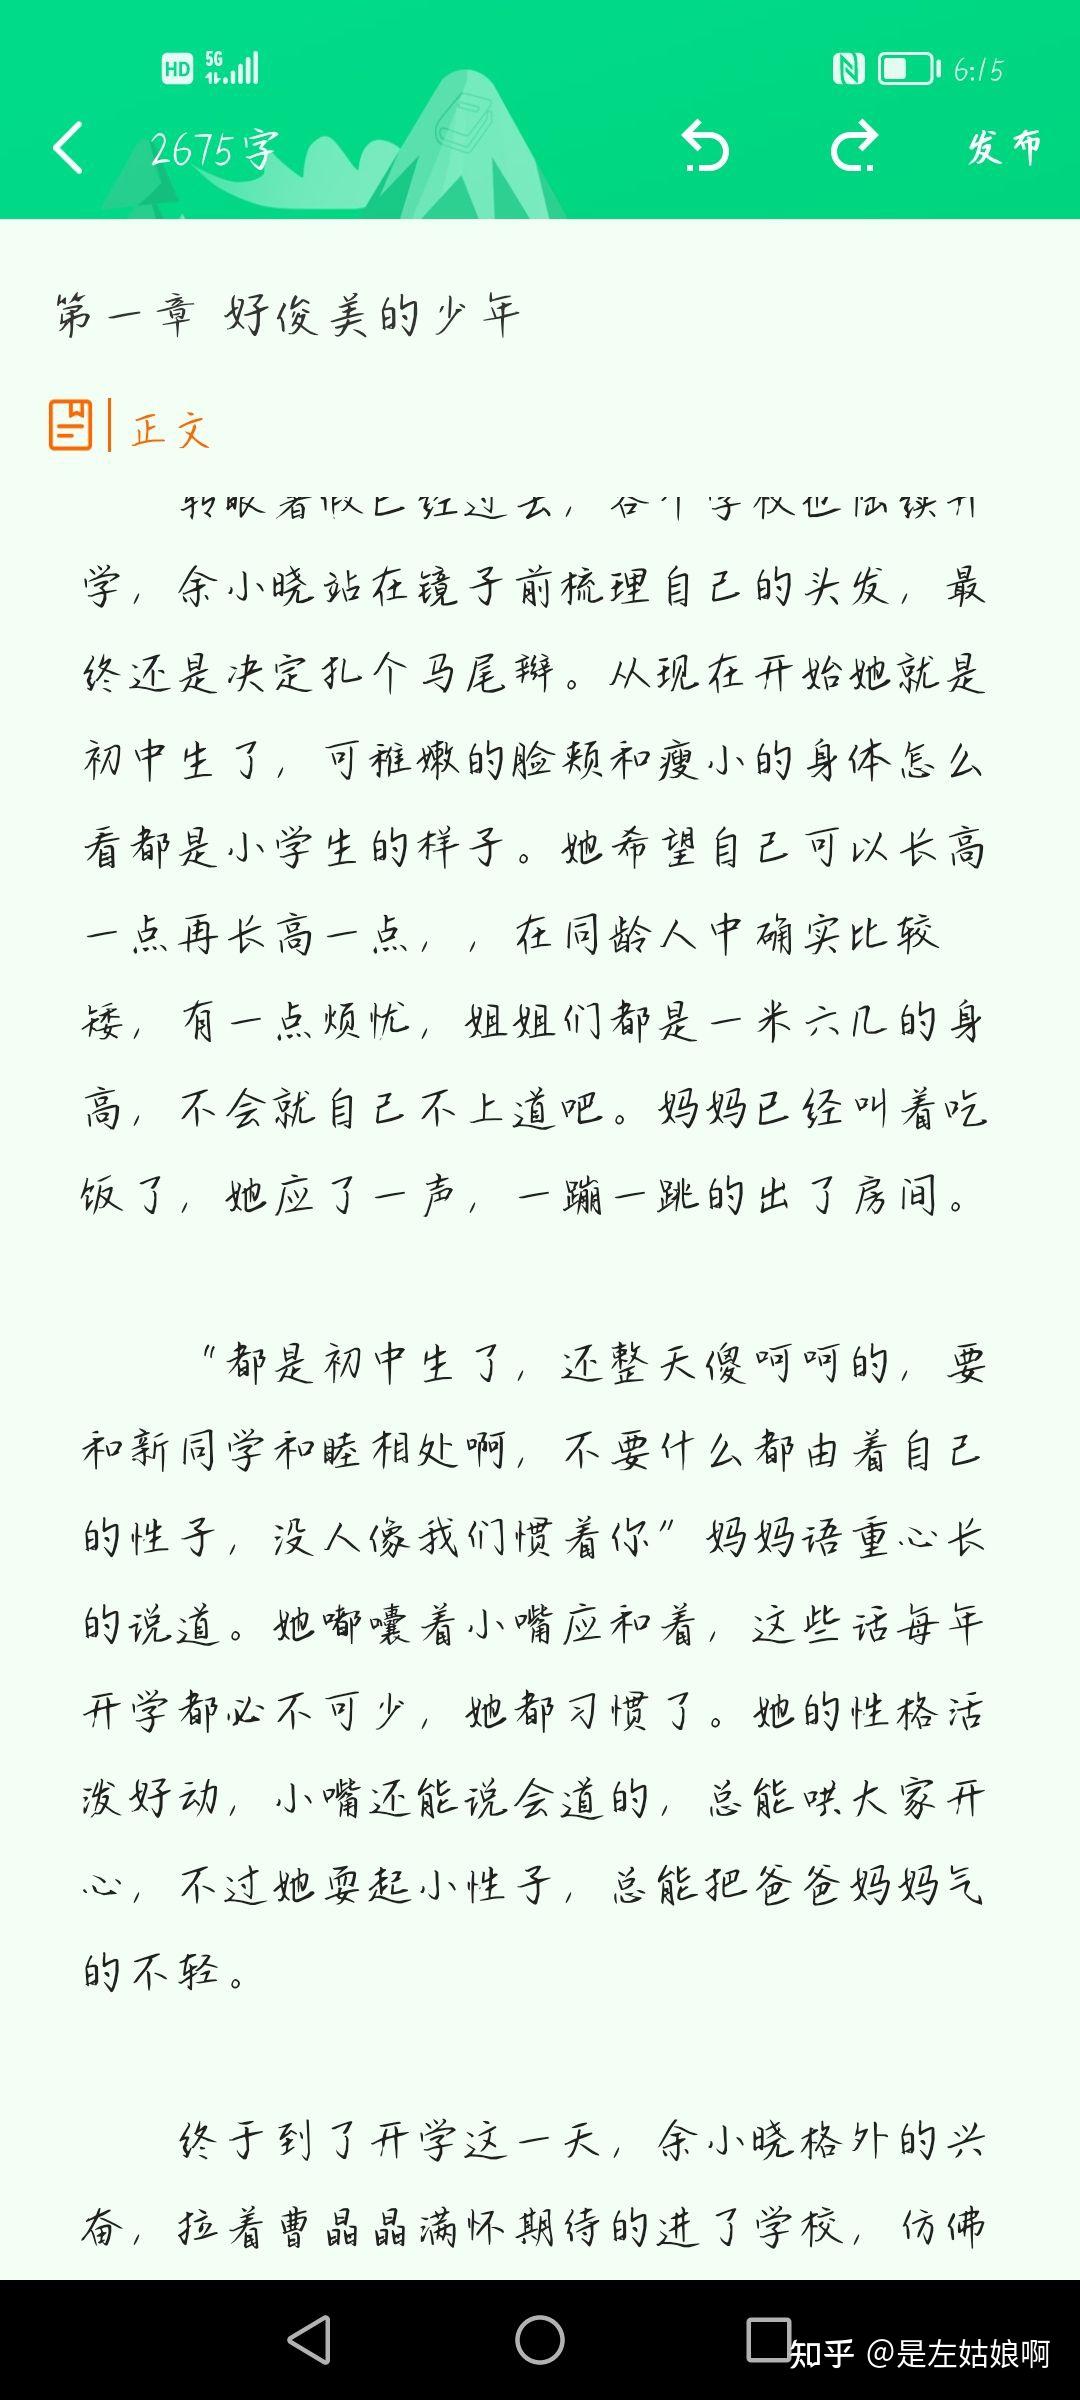 HD 5G 6:15
2675字 发布
第一章 好俊美的少年
正文
转眼暑假已经过去，各个学校也陆续开
学，余小晓站在镜子前梳理自己的头发，最
终还是决定扎个马尾辫。从现在开始她就是
初中生了，可稚嫩的脸颊和瘦小的身体怎么
看都是小学生的样子。她希望自己可以长高
一点再长高一点，，在同龄人中确实比较
矮，有一点烦忧，姐姐们都是一米六几的身
高，不会就自己不上道吧。妈妈已经叫着吃
饭了，她应了一声，一蹦一跳的出了房间。
“都是初中生了，还整天傻呵呵的，要
和新同学和睦相处啊，不要什么都由着自己
的性子，没人像我们惯着你”妈妈语重心长
的说道。她嘟囔着小嘴应和着，这些话每年
开学都必不可少，她都习惯了。她的性格活
泼好动，小嘴还能说会道的，总能哄大家开
心，不过她耍起小性子，总能把爸爸妈妈气
的不轻。
终于到了开学这一天，余小晓格外的兴
奋，拉着曹晶晶满怀期待的进了学校，仿佛
知乎 @是左姑娘啊